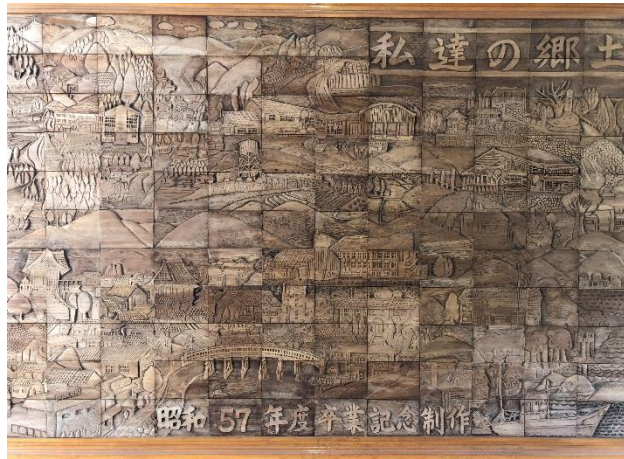 私達の郷土
昭和57年度卒業記念制作